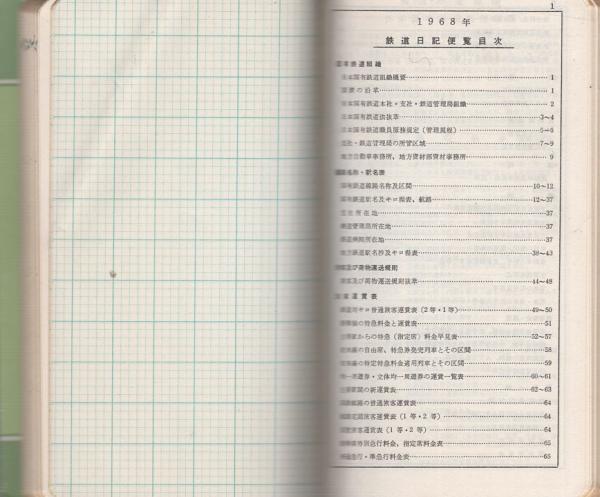 1
1968年
鉄道日記便覧目次
有鉄道組織
日本国有鉄道組織概要 1
の沿革 1
日本国有鉄道本社・支社・鉄道管理局組織 2
日本国有鉄道法抜萃 3〜4
日本国有鉄道職員服務規定（管理規程） 5〜6
支社・鉄道管理局の所管区域 7〜9
地方自動車事務所、地方資材部資材事務所 9
名称・駅名表
国有鉄道線路名称及区間 10〜12
国有鉄道駅名及キロ程表、航路 12〜37
所在地 37
鉄道管理局所在地 37
鉄道病院所在地 37
地方鉄道駅名抄及キロ程表 38〜43
及び荷物運送規則
及び荷物運送規則抜萃 44〜48
運賃表
キロ普通旅客運賃表（2等・1等） 49〜50
の特急料金と運賃表 51
からの特急（指定席）料金早見表 52〜57
の自由席、特急券発売列車とその区間 58
の特定特急料金適用列車とその区間 59
周遊券・立体均一周遊券の運賃一覧表 60〜61
の新運賃表 62〜63
の普通旅客運賃表 64
旅客運賃表（1等・2等） 64
旅客運賃表（1等・2等） 64
特別急行料金、指定席料金表 65
急行・準急行料金表 65